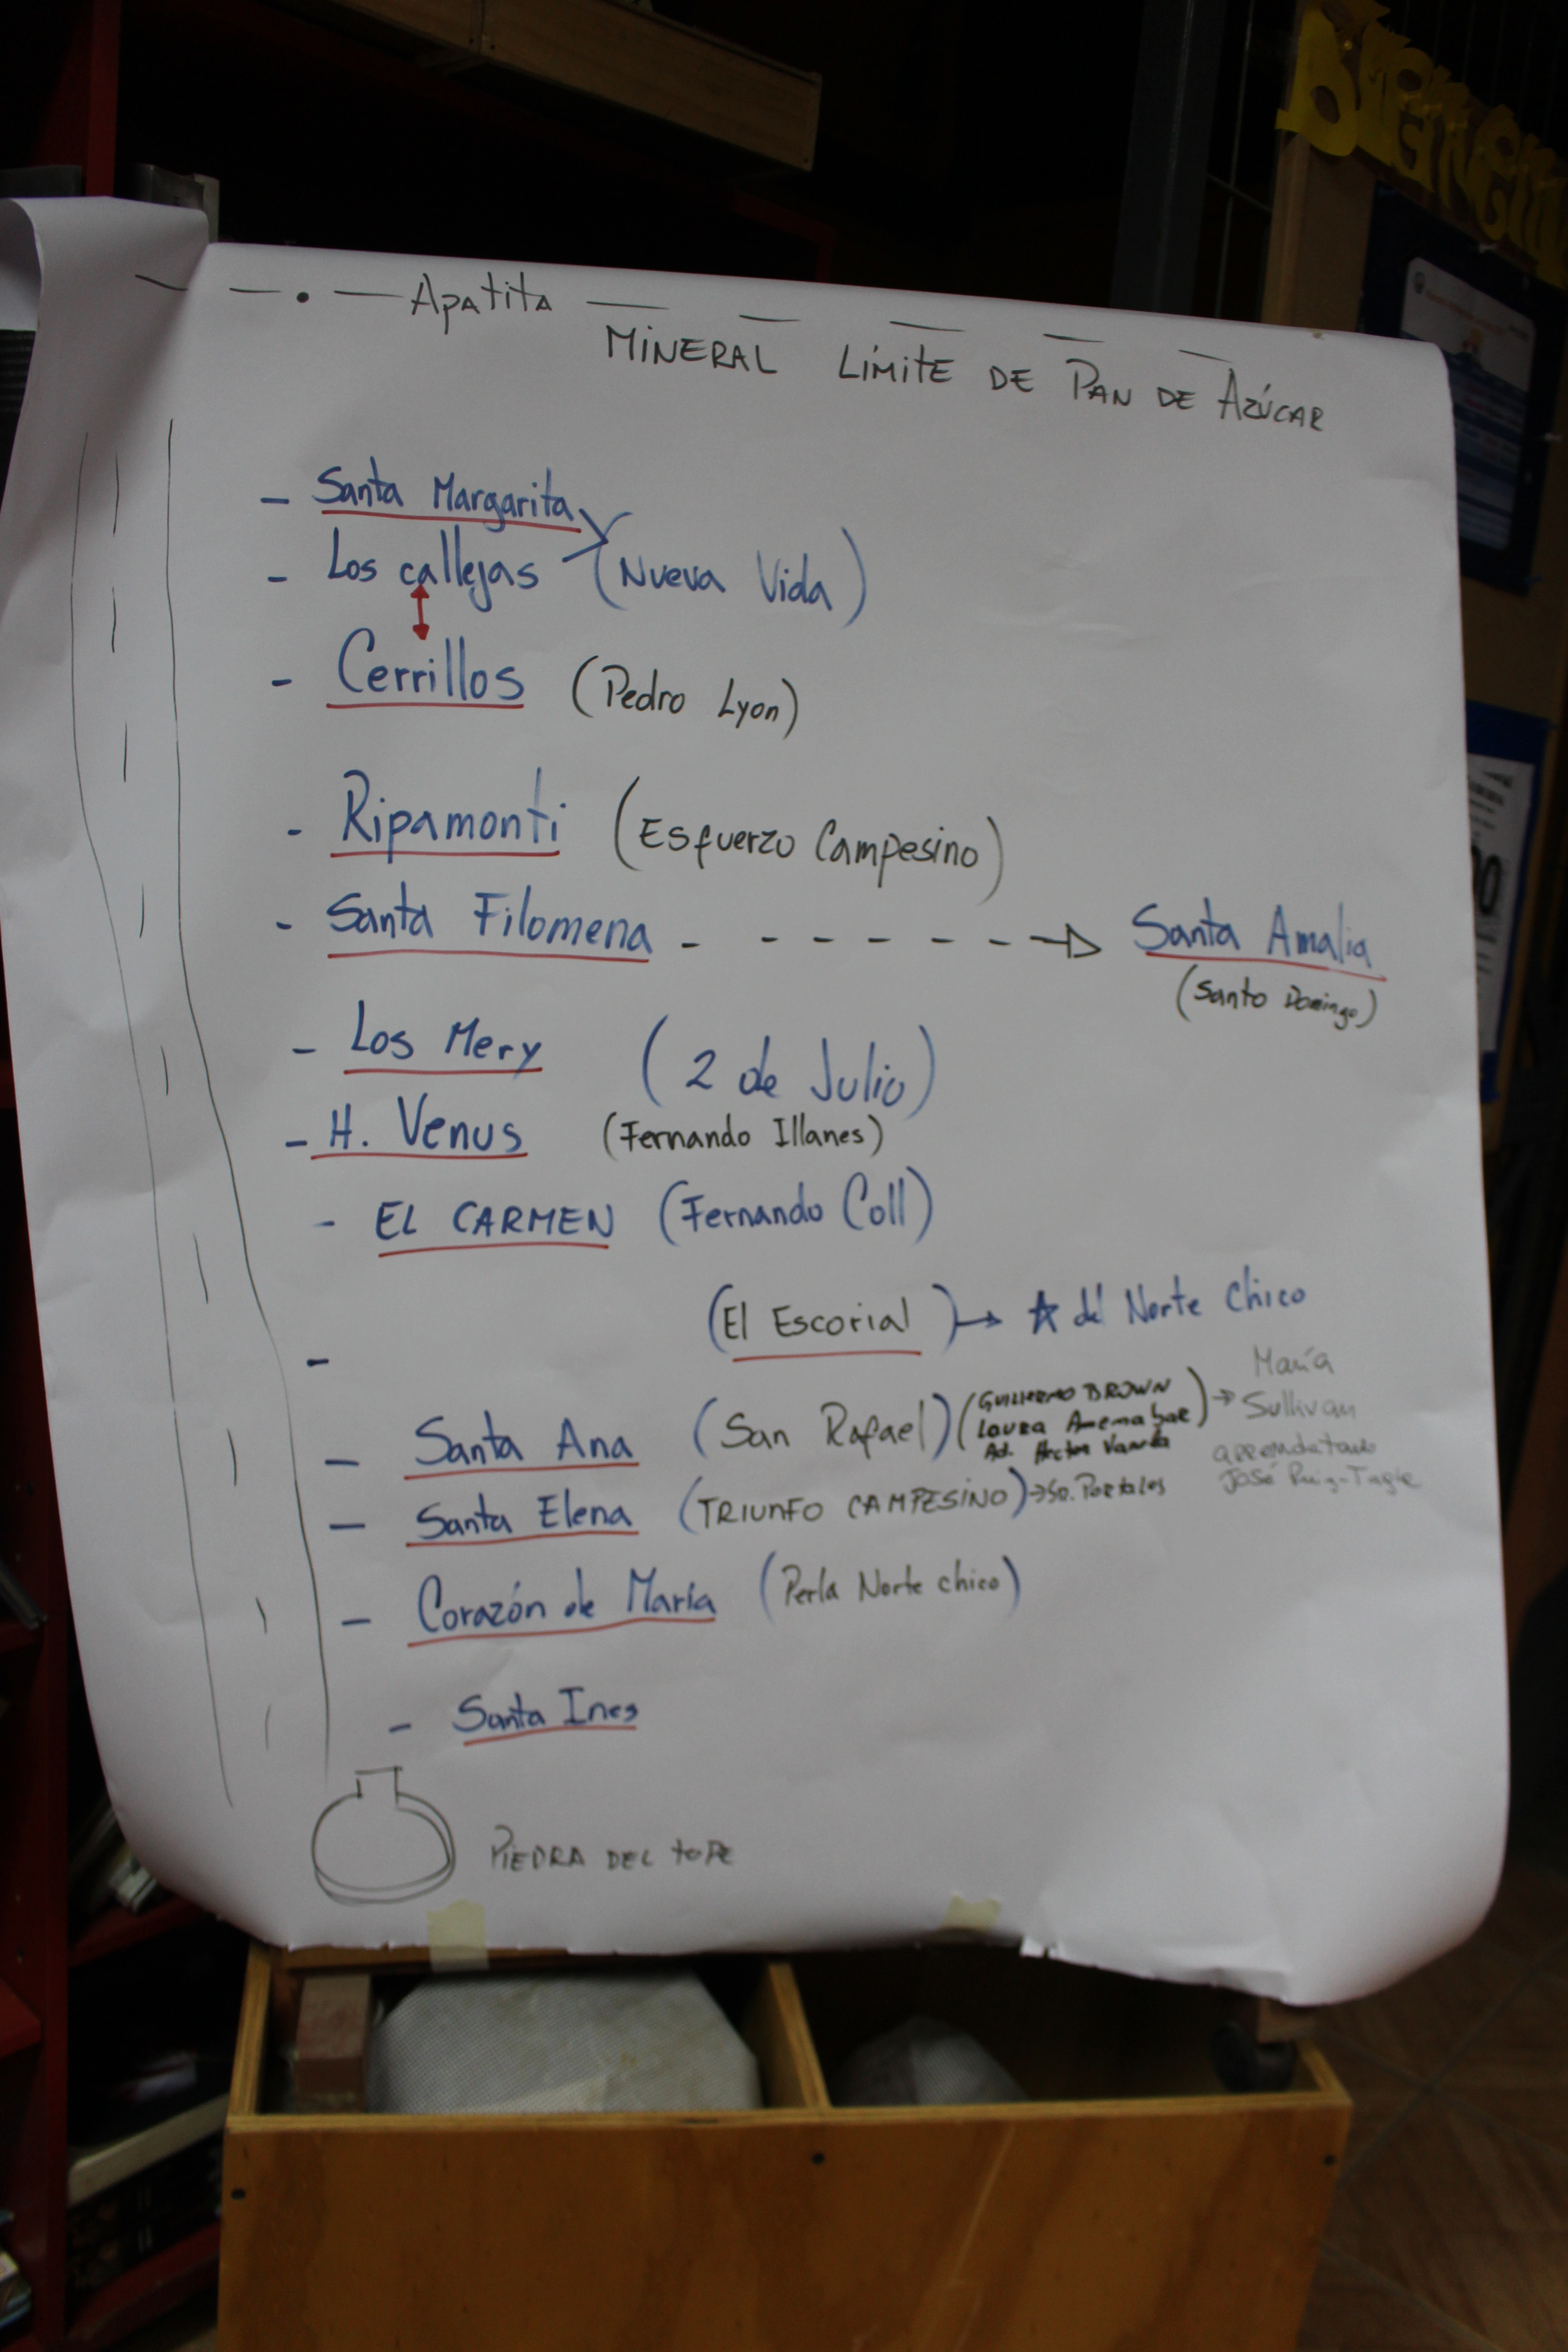 BIENVENI
— — • — Apatita — — — — —
MINERAL LÍMITE DE PAN DE AZÚCAR
- Santa Margarita
- Los callejas (Nueva Vida)
- Cerrillos (Pedro Lyon)
- Ripamonti (Esfuerzo Campesino)
- Santa Filomena - - - - - - → Santa Amalia
(Santo Domingo)
- Los Mery (2 de Julio)
- H. Venus (Fernando Illanes)
- EL CARMEN (Fernando Coll)
- (El Escorial) → ☆ del Norte Chico
- Santa Ana (San Rafael) (GUILLERMO BROWN → María
Laura Sullivan
Ad. arrendatario
José Ruiz-Tagle
- Santa Elena (TRIUNFO CAMPESINO) → Sr. Portales
- Corazón de María (Perla Norte chico)
- Santa Ines
PIEDRA DEL TOPE